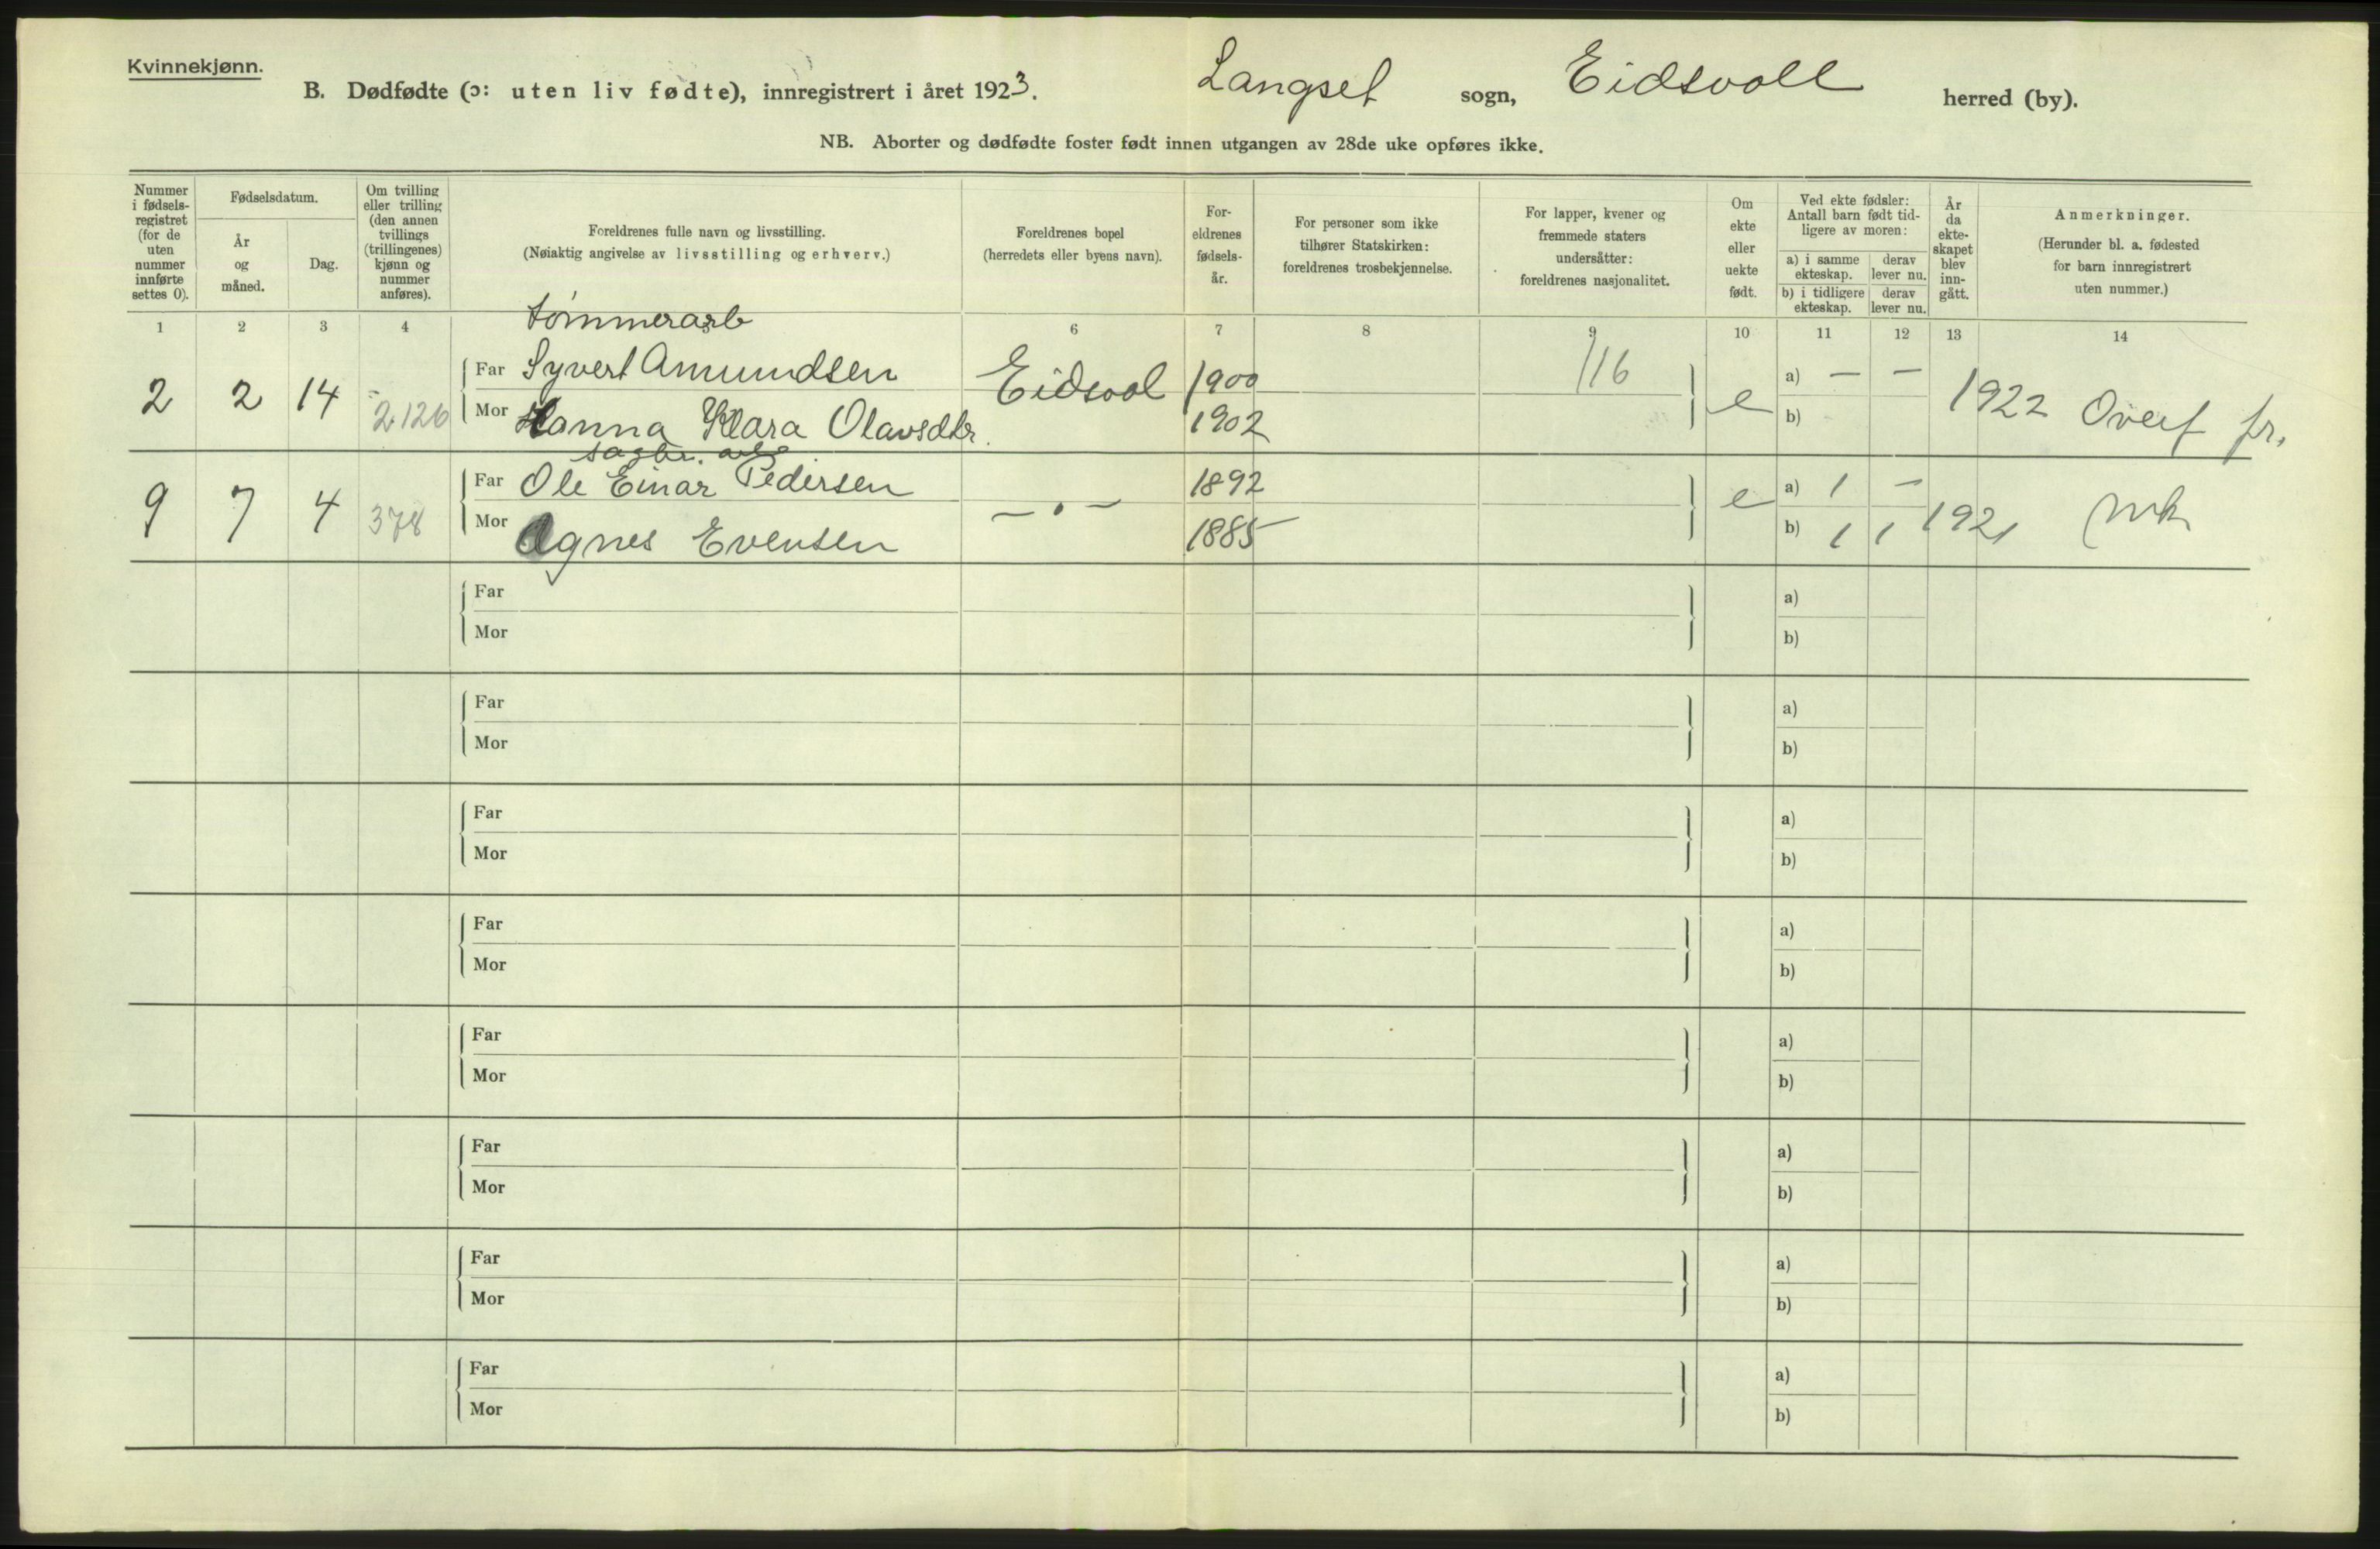 Kvinnekjønn.
B. Dødfødte (ɔ: uten liv fødte), innregistrert i året 1923. Langset sogn, Eidsvoll herred (by).
NB. Aborter og dødfødte foster født innen utgangen av 28de uke opføres ikke.
Nummer i fødsels- registret (for de uten nummer innførte settes 0).
Fødselsdatum.
År og måned.
Dag.
Om tvilling eller trilling (den annen tvillings (trillingenes) kjønn og nummer anføres).
Foreldrenes fulle navn og livsstilling.
(Nøiaktig angivelse av livsstilling og erhverv.)
Foreldrenes bopel
(herredets eller byens navn).
For- eldrenes fødsels- år.
For personer som ikke tilhører Statskirken: foreldrenes trosbekjennelse.
For lapper, kvener og fremmede staters undersåtter: foreldrenes nasjonalitet.
Om ekte eller uekte født.
Ved ekte fødsler: Antall barn født tid- ligere av moren:
a) i samme ekteskap.
derav lever nu.
b) i tidligere ekteskap.
derav lever nu.
År da ekte- skapet blev inn- gått.
Anmerkninger.
(Herunder bl. a. fødested for barn innregistrert uten nummer.)
1 2 3 4 6 7 8 9 10 11 12 13 14
tømmerarb
2 2 14 - 2126 Far Syvert Amundsen Eidsvol 1900 116 e a) — — 1922 Overf fr.
Mor Hanna Klara Olavsdtr. 1902 b)
sagbr. arb
9 7 4 378 Far Ole Einar Pedersen — " — 1892 e a) 1 - 1921
Mor Agnes Evensen 1885 b) 1 1
Far a)
Mor b)
Far a)
Mor b)
Far a)
Mor b)
Far a)
Mor b)
Far a)
Mor b)
Far a)
Mor b)
Far a)
Mor b)
Far a)
Mor b)